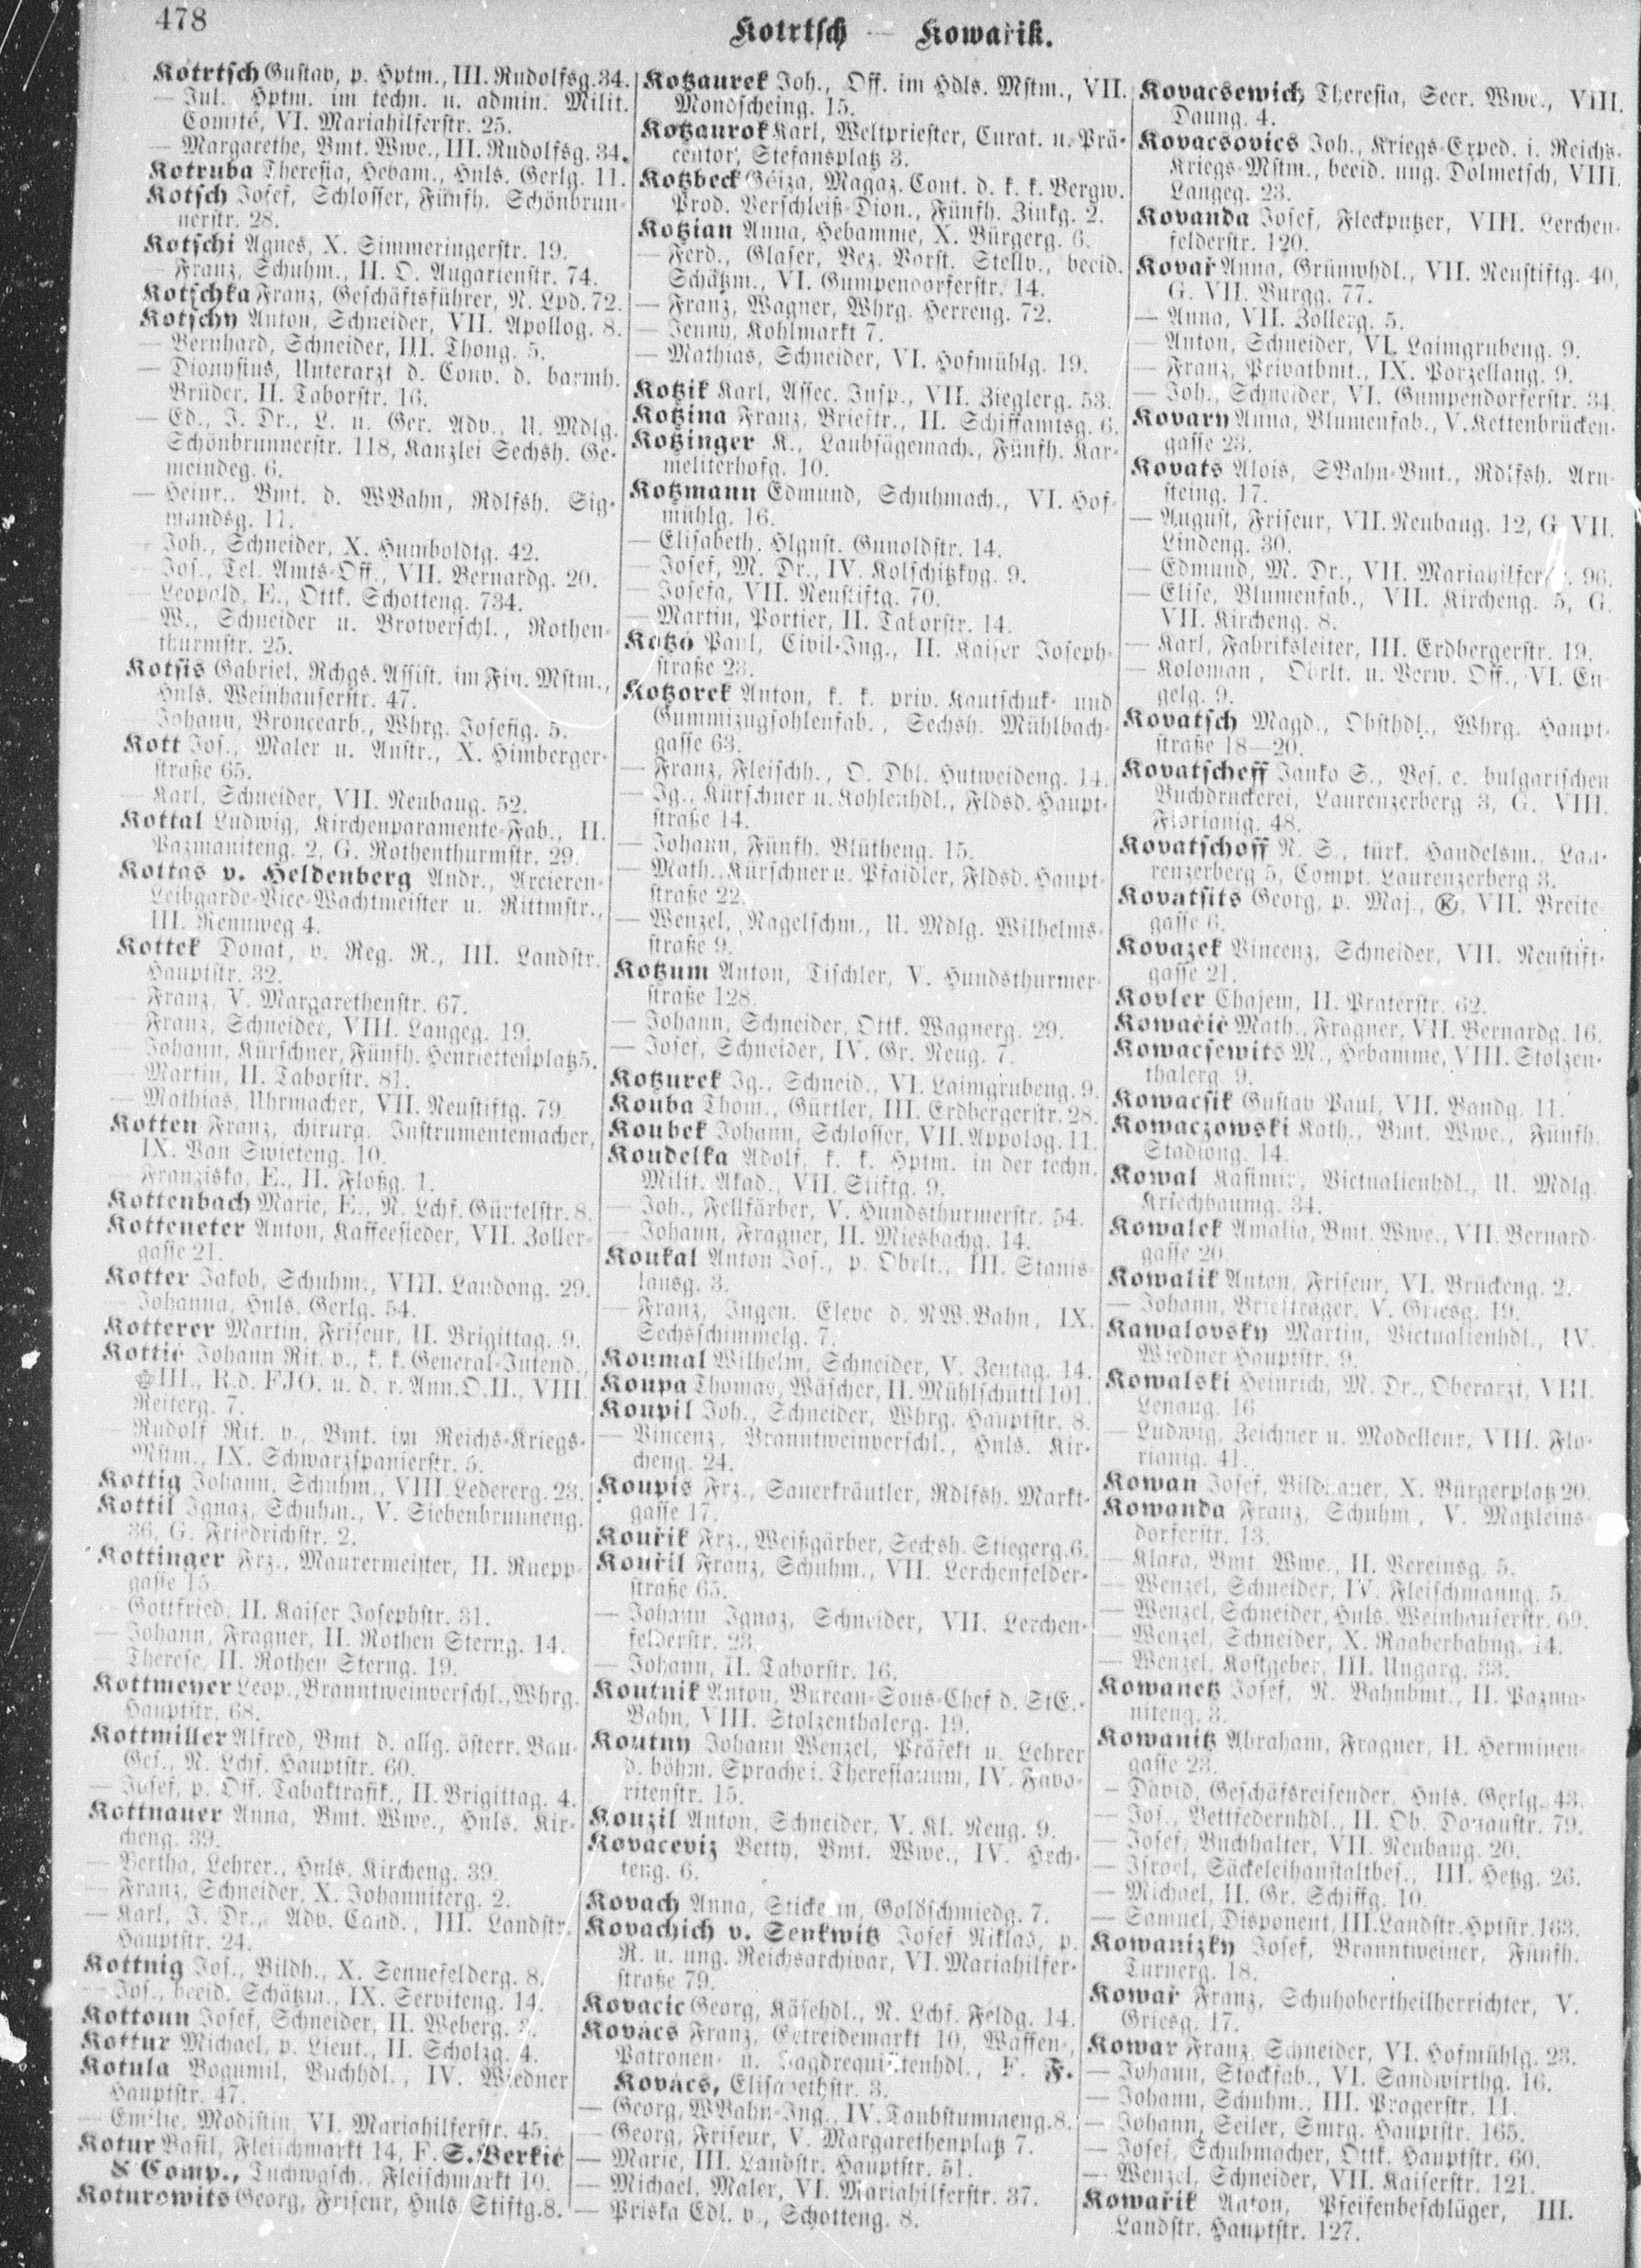 478
Kotrtsch — Kowařik.
Kotrtsch Gustav, p. Hptm., III. Rudolfsg. 34.
— Jul. Hptm. im techn. u. admin. Milit.
Comité, VI. Mariahilferstr. 25.
— Margarethe, Bmt. Wwe., III. Rudolfsg. 34.
Kotruba Theresia, Hebam., Hnls. Gerlg. 11.
Kotsch Josef, Schlosser, Fünfh. Schönbrun-
nerstr. 28.
Kotschi Agnes, X. Simmeringerstr. 19.
— Franz, Schuhm., II. O. Augartenstr. 74.
Kotschka Franz, Geschäftsführer, N. Lpd. 72.
Kotschy Anton, Schneider, VII. Apollog. 8.
— Bernhard, Schneider, III. Thong. 5.
— Dionysius, Unterarzt d. Conv. d. barmh.
Brüder, II. Taborstr. 16.
— Ed., J. Dr., L. u. Ger. Adv., U. Mdlg.
Schönbrunnerstr. 118, Kanzlei Sechsh. Ge-
meindeg. 6.
— Heinr., Bmt. d. WBahn, Rdlfsh. Sig-
mundsg. 11.
— Joh., Schneider, X. Humboldtg. 42.
— Jos., Tel. Amts-Off., VII. Bernardg. 20.
— Leopold, E., Ottk. Schotteng. 734.
— W., Schneider u. Brotverschl., Rothen-
thurmstr. 25.
Kotsis Gabriel, Rchgs. Assist. im Fin. Mstm.,
Hnls. Weinhauserstr. 47.
— Johann, Broncearb., Whrg. Josefig. 5.
Kott Jos., Maler u. Anstr., X. Himberger-
straße 65.
— Karl, Schneider, VII. Neubaug. 52.
Kottal Ludwig, Kirchenparamente-Fab., II.
Pazmaniteng. 2, G. Rothenthurmstr. 29.
Kottas v. Heldenberg Andr., Arcieren-
Leibgarde-Vice-Wachtmeister u. Rittmstr.,
III. Rennweg 4.
Kottek Donat, p. Reg. R., III. Landstr.
Hauptstr. 32.
— Franz, V. Margarethenstr. 67.
— Franz, Schneider, VIII. Langeg. 19.
— Johann, Kürschner, Fünfh. Henriettenplatz 5.
— Martin, II. Taborstr. 81.
— Mathias, Uhrmacher, VII. Neustiftg. 79.
Kotten Franz, chirurg. Instrumentemacher,
IX. Van Swieteng. 10.
— Franziska, E., II. Floßg. 1.
Kottenbach Marie, E., N. Lchf. Gürtelstr. 8.
Kotteneter Anton, Kaffeesieder, VII. Zoller-
gasse 21.
Kotter Jakob, Schuhm., VIII. Laudong. 29.
— Johanna, Hnls. Gerlg. 54.
Kotterer Martin, Friseur, II. Brigittag. 9.
Kottié Johann Rit. v., k. k. General-Intend.,
III., R. d. FJO. u. d. r. Ann. O. II., VIII.
Reiterg. 7.
— Rudolf Rit. v., Bmt. im Reichs-Kriegs-
Mstm., IX. Schwarzspanierstr. 5.
Kottig Johann, Schuhm., VIII. Ledererg. 23.
Kottil Ignaz, Schuhm., V. Siebenbrunneng.
36, G. Friedrichstr. 2.
Kottinger Frz., Maurermeister, II. Ruepp-
gasse 15.
— Gottfried, II. Kaiser Josephstr. 31.
— Johann, Fragner, II. Rothen Sterng. 14.
— Therese, II. Rothen Sterng. 19.
Kottmeyer Leop., Branntweinverschl., Whrg.
Hauptstr. 68.
Kottmiller Alfred, Bmt. d. allg. österr. Bau-
Ges., N. Lchf. Hauptstr. 60.
— Josef, p. Off. Tabaktrafik., II. Brigittag. 4.
Kottnauer Anna, Bmt. Wwe., Hnls. Kir-
cheng. 39.
— Bertha, Lehrer., Hnls. Kircheng. 39.
— Franz, Schneider, X. Johanniterg. 2.
— Karl, J. Dr., Adv. Cand., III. Landstr.
Hauptstr. 24.
Kottnig Jos., Bildh., X. Sennefelderg. 8.
— Jos., beeid. Schätzm., IX. Serviteng. 14.
Kottoun Josef, Schneider, II. Weberg.
Kottur Michael, p. Lieut., II. Scholzg. 4.
Kotula Bogumil, Buchhdl., IV. Wiedner
Hauptstr. 47.
— Emilie, Modistin, VI. Mariahilferstr. 45.
Kotur Basil, Fleischmarkt 14, F. S. Berkić
& Comp., Tuchwasch., Fleischmarkt 10.
Koturowits Georg, Friseur, Hnls. Stiftg. 8.
Kotzaurek Joh., Off. im Hdls. Mstm., VII.
Mondscheing. 15.
Kotzaurok Karl, Weltpriester, Curat. u. Prä-
centor, Stefansplatz 3.
Kotzbeck Géiza, Magaz. Cont. d. k. k. Bergw.
Prod. Verschleiß-Dion., Fünfh. Zinkg. 2.
Kotzian Anna, Hebamme, X. Bürgerg. 6.
— Ferd., Glaser, Bez. Vorst. Stellv., beeid.
Schätzm., VI. Gumpendorferstr. 14.
— Franz, Wagner, Whrg. Herreng. 72.
— Jenny, Kohlmarkt 7.
— Mathias, Schneider, VI. Hofmühlg. 19.
Kotzik Karl, Assec. Insp., VII. Zieglerg. 53.
Kotzina Franz, Brieftr., II. Schiffamtsg. 6.
Kotzinger K., Laubsägemach., Fünfh. Kar-
meliterhofg. 10.
Kotzmann Edmund, Schuhmach., VI. Hof-
mühlg. 16.
— Elisabeth, Hlgnst. Gunoldstr. 14.
— Josef, M. Dr., IV. Kolschitzkyg. 9.
— Josefa, VII. Neustiftg. 70.
— Martin, Portier, II. Taborstr. 14.
Kotzo Paul, Civil-Ing., II. Kaiser Joseph-
straße 23.
Kotzorek Anton, k. k. priv. Kautschuk- und
Gummizugsohlenfab., Sechsh. Mühlbach-
gasse 63.
— Franz, Fleischh., O. Dbl. Hutweideng. 14.
— Ig., Kürschner u. Kohlenhdl., Fldsd. Haupt-
straße 14.
— Johann, Fünfh. Blütheng. 15.
— Math., Kürschner u. Pfaidler, Fldsd. Haupt-
straße 22.
— Wenzel, Nagelschm., U. Mdlg. Wilhelms-
straße 9.
Kotzum Anton, Tischler, V. Hundsthurmer-
straße 128.
— Johann, Schneider, Ottk. Wagnerg. 29.
— Josef, Schneider, IV. Gr. Neug. 7.
Kotzurek Ig., Schneid., VI. Laimgrubeng. 9.
Kouba Thom., Gürtler, III. Erdbergerstr. 28.
Koubek Johann, Schlosser, VII. Appolog. 11.
Koudelka Adolf, k. k. Hptm. in der techn.
Milit. Akad., VII. Stiftg. 9.
— Joh., Fellfärber, V. Hundsthurmerstr. 54.
— Johann, Fragner, II. Miesbachg. 14.
Koukal Anton Jos., p. Obrlt., III. Stanis-
lausg. 3.
— Franz, Ingen. Eleve d. NW. Bahn, IX.
Sechsschimmelg. 7.
Koumal Wilhelm, Schneider, V. Zentag. 14.
Koupa Thomas, Wäscher, II. Mühlschüttl 101.
Koupil Joh., Schneider, Whrg. Hauptstr. 8.
— Vincenz, Branntweinverschl., Hnls. Kir-
cheng. 24.
Koupis Frz., Sauerkräutler, Rdlfsh. Markt-
gasse 17.
Kouřik Frz., Weißgärber, Sechsh. Stiegerg. 6.
Kouřil Franz, Schuhm., VII. Lerchenfelder-
straße 65.
— Johann Ignaz, Schneider, VII. Lerchen-
felderstr. 23.
— Johann, II. Taborstr. 16.
Koutnik Anton, Bureau-Sous-Chef d. StE.-
Bahn, VIII. Stolzenthalerg. 19.
Koutny Johann Wenzel, Präfekt u. Lehrer
d. böhm. Sprache i. Theresianum, IV. Favo-
ritenstr. 15.
Kouzil Anton, Schneider, V. Kl. Neug. 9.
Kovaceviz Betty, Bmt. Wwe., IV. Hech-
teng. 6.
Kovach Anna, Stickerin, Goldschmiedg. 7.
Kovachich v. Senkwitz Josef Niklas, p.
R. u. ung. Reichsarchivar, VI. Mariahilfer-
straße 79.
Kovacic Georg, Käsehdl., N. Lchf. Feldg. 14.
Kovács Franz, Getreidemarkt 10, Waffen-,
Patronen- u. Jagdrequisitenhdl., F. F.
Kovács, Elisabethstr. 3.
— Georg, WBahn-Ing., IV. Taubstummeng. 8.
— Georg, Friseur, V. Margarethenplatz 7.
— Marie, III. Landstr. Hauptstr. 51.
— Michael, Maler, VI. Mariahilferstr. 37.
— Priska Edl. v., Schotteng. 8.
Kovacsewich Theresia, Secr. Wwe., VIII.
Daung. 4.
Kovacsovics Joh., Kriegs-Exped. i. Reichs-
Kriegs-Mstm., beeid. ung. Dolmetsch, VIII.
Langeg. 23.
Kovanda Josef, Fleckputzer, VIII. Lerchen-
felderstr. 120.
Kovař Anna, Grünwhdl., VII. Neustiftg. 40,
G. VII. Burgg. 77.
— Anna, VII. Zollerg. 5.
— Anton, Schneider, VI. Laimgrubeng. 9.
— Franz, Privatbmt., IX. Porzellang. 9.
— Joh., Schneider, VI. Gumpendorferstr. 34.
Kovary Anna, Blumenfab., V. Kettenbrücken-
gasse 23.
Kovats Alois, SBahn-Bmt., Rdlfsh. Arn-
steing. 17.
— August, Friseur, VII. Neubaug. 12, G. VII.
Lindeng. 30.
— Edmund, M. Dr., VII. 96.
— Elise, Blumenfab., VII. Kircheng. 5, G.
VII. Kircheng. 8.
— Karl, Fabriksleiter, III. Erdbergerstr. 19.
— Koloman, Obrlt. u. Verw. Off., VI. En-
gelg. 9.
Kovatsch Magd., Obsthdl., Whrg. Haupt-
straße 18—20.
Kovatscheff Janko S., Bes. e. bulgarischen
Buchdruckerei, Laurenzerberg 3, G. VIII.
Florianig. 48.
Kovatschoff N. S., türk. Handelsm., Lau-
renzerberg 5, Compt. Laurenzerberg 3.
Kovatsits Georg, p. Maj., Ⓚ, VII. Breite-
gasse 6.
Kovazek Vincenz, Schneider, VII. Neustift-
gasse 21.
Kovler Chajem, II. Praterstr. 62.
Kowačič Math., Fragner, VII. Bernardg. 16.
Kowacsewits M., Hebamme, VIII. Stolzen-
thalerg. 9.
Kowacsik Gustav Paul, VII. Bandg. 11.
Kowaczowski Kath., Bmt. Wwe., Fünfh.
Stadiong. 14.
Kowal Kasimir, Victualienhdl., U. Mdlg.
Kriechbaumg. 34.
Kowalek Amalia, Bmt. Wwe., VII. Bernard-
gasse 20.
Kowalik Anton, Friseur, VI. Brückeng. 2.
— Johann, Briefträger, V. Griesg. 19.
Kawalovsky Martin, Victualienhdl., IV.
Wiedner Hauptstr. 9.
Kowalski Heinrich, M. Dr., Oberarzt, VIII.
Lenaug. 16.
— Ludwig, Zeichner u. Modelleur, VIII. Flo-
rianig. 41.
Kowan Josef, Bildhauer, X. Bürgerplatz 20.
Kowanda Franz, Schuhm., V. Matzleins-
dorferstr. 13.
— Klara, Bmt. Wwe., II. Vereinsg. 5.
— Wenzel, Schneider, IV. Fleischmanng. 5.
— Wenzel, Schneider, Hnls. Weinhauserstr. 69.
— Wenzel, Schneider, X. Raaberbahng. 14.
— Wenzel, Kostgeber, III. Ungarg. 33.
Kowanetz Josef, N. Bahnbmt., II. Pazma-
niteng. 3.
Kowanitz Abraham, Fragner, II. Herminen-
gasse 23.
— David, Geschäfsreisender, Hnls. Gerlg. 43.
— Jos., Bettfedernhdl., II. Ob. Donaustr. 79.
— Josef, Buchhalter, VII. Neubaug. 20.
— Israel, Säckeleihanstaltbes., III. Hetzg. 26.
— Michael, II. Gr. Schiffg. 10.
— Samuel, Disponent, III. Landstr. Hptstr. 163.
Kowanizky Josef, Branntweiner, Fünfh.
Turnerg. 18.
Kowař Franz, Schuhobertheilherrichter, V.
Griesg. 17.
Kowar Franz, Schneider, VI. Hofmühlg. 23.
— Johann, Stockfab., VI. Sandwirthg. 16.
— Johann, Schuhm., III. Pragerstr. 11.
— Johann, Seiler, Smrg. Hauptstr. 165.
— Josef, Schuhmacher, Ottk. Hauptstr. 60.
— Wenzel, Schneider, VII. Kaiserstr. 121.
Kowařik Anton, Pfeifenbeschläger, III.
Landstr. Hauptstr. 127.